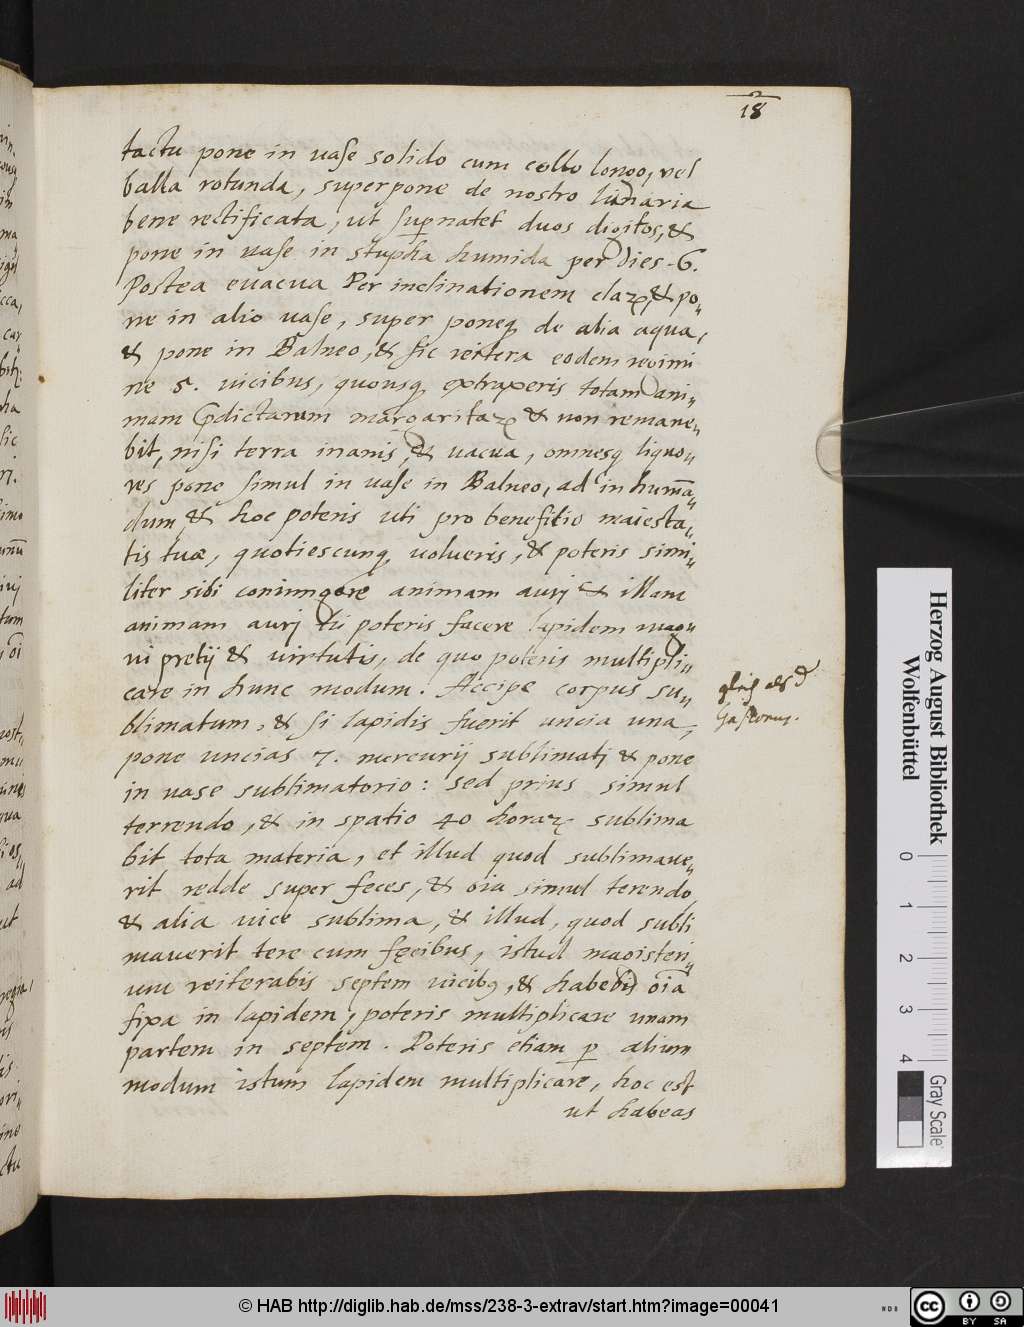 18
tactu pone in uase solido cum collo longo, vel
balla rotunda, superpone de nostro lunaria
bene rectificata, ut supnatet duos digitos, &
pone in uase in stupha humida per dies. 6.
Postea euacua Per inclinationem claꝝ, & po-
ne in alio uase, super poneqꝫ de alia aqua,
& pone in Balneo, & sic reitera eodem regimi
ne 5. uicibus, quousqꝫ extraxeris totam ani-
mam p̄dictarum margaritaꝝ & non remane-
bit, nisi terra inanis, & uacua, omnesqꝫ liquo-
res pone simul in uase in Balneo, ad inhumā-
dum, & hoc poteris uti pro benefitio maiesta-
tis tuæ, quotiescunqꝫ uolueris, & poteris simi-
liter sibi coniungere animam aurj & illam
animam aurj tu poteris facere lapidem mag-
ni pretij & virtutis, de quo poteris multipli-
care in hunc modum. Accipe corpus su-
blimatum, & si lapidis fuerit uncia una,
pone uncias 7. mercurij sublimatj & pone
in uase sublimatorio: sed prius simul
terrendo, & in spatio 40 horaꝝ sublima
bit tota materia, et illud quod sublimaue-
rit redde super feces, & oīa simul terendo
& alia uice sublima, & illud, quod subli
mauerit tere cum fęcibus, istud magisteri-
um reiterabis septem uicibꝫ, & habebis oīa
fixa in lapidem, poteris multiplicare unam
partem in septem. Poteris etiam ꝑ alium
modum istum lapidem multiplicare, hoc est
ut habeas
Herzog August Bibliothek
Wolfenbüttel
0 1 2 3 4
Gray Scale
© HAB http://diglib.hab.de/mss/238-3-extrav/start.htm?image=00041
cc BY SA